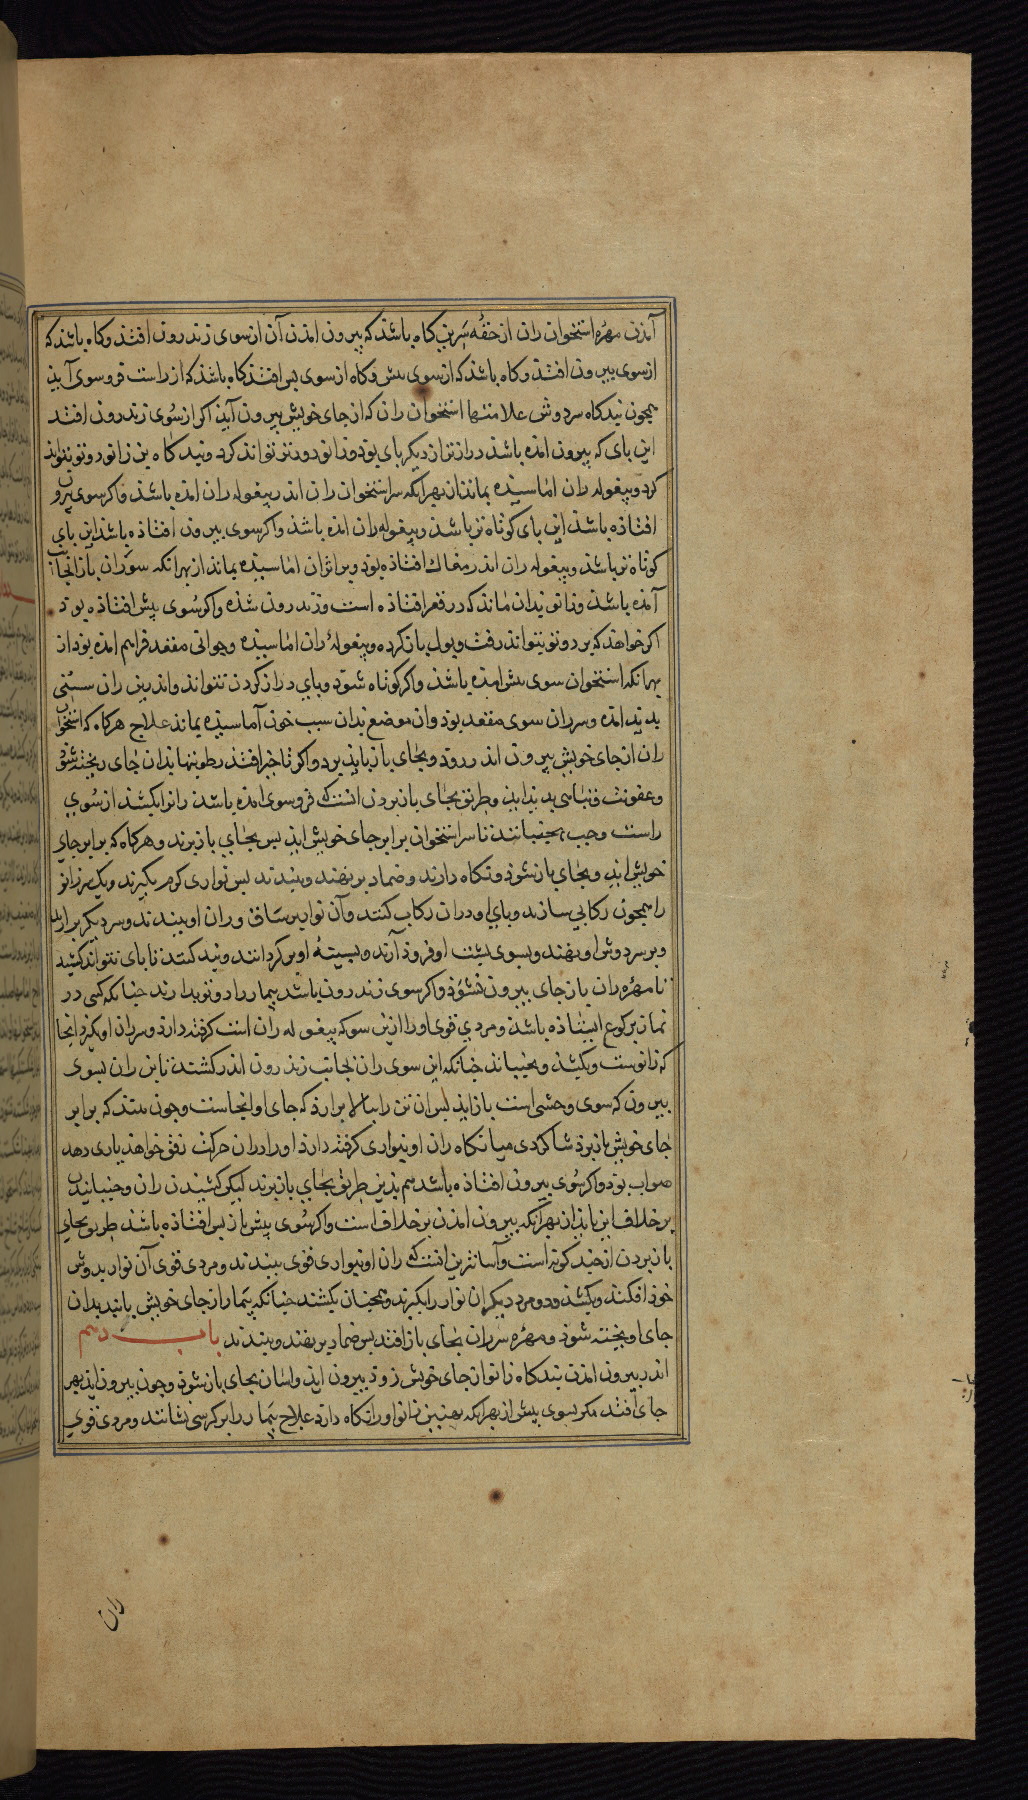 آمدن مهرهٔ استخوان ران از حقهٔ سرین گاه باشذ که بیرون امدن آن از سوی زندرون افتذ وگاه باشذ که
از سوی بیرون افتذ وکاه باشذ که از سوی پیش وکاه از سوی پس افتذ گاه باشذ که از راست فروسوی آیذ
همچون بندکاه سردوش علامتها استخوان ران که از جای خویش بیرون آیذ اکر از سُوی زندرون افتد
این پای که بیرون امذه باشذ درازتر از دیکر پای بوذ وزانو دوتو نتواند کرد وبندکاه بن ران دوتو نتواند
کرد وبیغوله ران اماسیذه بماند از بهر انکه سر استخوان ران اندر بیغوله ران امذه باشذ واکر سوی بیرون
افتاذه باشذ این پای کوتاه تر باشذ وبیغوله ران امذه باشذ واکر سوی بیرون افتاذه باشذ این پای
کوتاه تر باشذ وبیغوله ران اندر مغاک افتاذه بوذ وبرابر ان اماسیذه بماند از بهر انکه سر ران بازانجانب
آمذه باشذ وزانو بدان مانذ که در قعر افتاذه است وزندرون شذه واکر سُوی پیش افتاذه بوذ
اکر خواهذ که پر دوتو نتواند رفت وبول باز کرده وبیغولهٔ ران اماسیذه وحوالی مقعد فراهم امذه بوذ از
بهرانکه استخوان سوی پیش امذه باشذ واکر کوتاه شوذ وپای دراز کردن نتواند واندر بن ران سستی
پدید امذه وسر ران سوی مقعد بوذ وان موضع بدان سبب خون آماسیذه بماند علاج هرکاه که استخوان
ران از جای خویش بیرون اید زود بجای باز باید برد واکر تاخیر افتد رطوبتها بدان جای ریخته شوذ
وعفونت وتباهی پدید ایذ وطریق بجای باز بردن انست که فروسوی امذه باشذ رانرا بکشذ از سُوی
راست وچپ بجنبانند تا سر استخوان برابر جای خویش ایذ پس بجای باز برند وهرکاه که برابر جای
خویش ایذ وبجای باز شوذ ونکاه دارند وضماد برنهند وببندند پس نواری کرم بکیرند ویک سر زانو
را همچون رکابی سازند وپای او دران رکاب کنند وآن نوار بر ساق وران او ببندند وسر دیکر برارند
وبر سردوش او نهند وبسوی پشت او فروذ آرند وبسینهٔ او برکردانند وبند کنند تا پای نتواند کشید
تا مهرهٔ ران باز جای بیرون نشوذ واکر سوی زندرون باشد بیمار را دوتو بدارند چنانکه کسی در
نماز برکوع ایستاذه باشذ ومردی قوی او را ازین سو که بیغوله ران است کرفته دارد وسر ران او بکیرد انجا
که زانوست وبکشذ وبجنباند چنانکه این سوی ران بجانب زندرون اندر کشند تا بن ران بسوی
بیرون که سوی وحشی است باز ایذ پس ان تن را ببالا برارذ که جای او انجاست وچون بینذ که برابر
جای خویش باز برذ شاکردی میانکاه ران او بنواری کرفته دارذ او را دران حرکت رفق خواهذ یاری دهد
صواب بوذ واکر سُوی بیرون افتاذه باشد هم بذین طریق بجای باز برند لیکن کشیدن ران وجنبانیدن
برخلاف این بایذ از بهرانکه بیرون امدن برخلاف است واکر سُوی پیش یا پس افتاذه باشذ طریق بجای
باز بردن از چند کونه است وآسانترین انست که ران او بنواری قوی ببندند ومردی قوی آن نوار بدوش
خوذ افکند وبکشذ ودو مرد دیکر ان نوار را بکیرند وهمچنان بکشند چنانکه بیمار از جای خویش باید بدان
جای اویخته شوذ ومهرهٔ سر ران بجای باز افتد پس ضماد برنهند وببندند باب دهم
اندر بیرون امذن بندکاه زانو از جای خویش زوذ بیرون ایذ واسان بجای باز شوذ وچون بیرون ایذ بهر
جای افتد مکر بسوی پیش از بهرانکه عینین زانو او را نکاه دارد علاج بیمار را بر کرسی نشانند ومردی قوی
ران